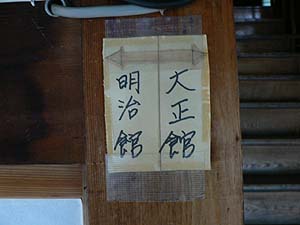 大正館
明治館